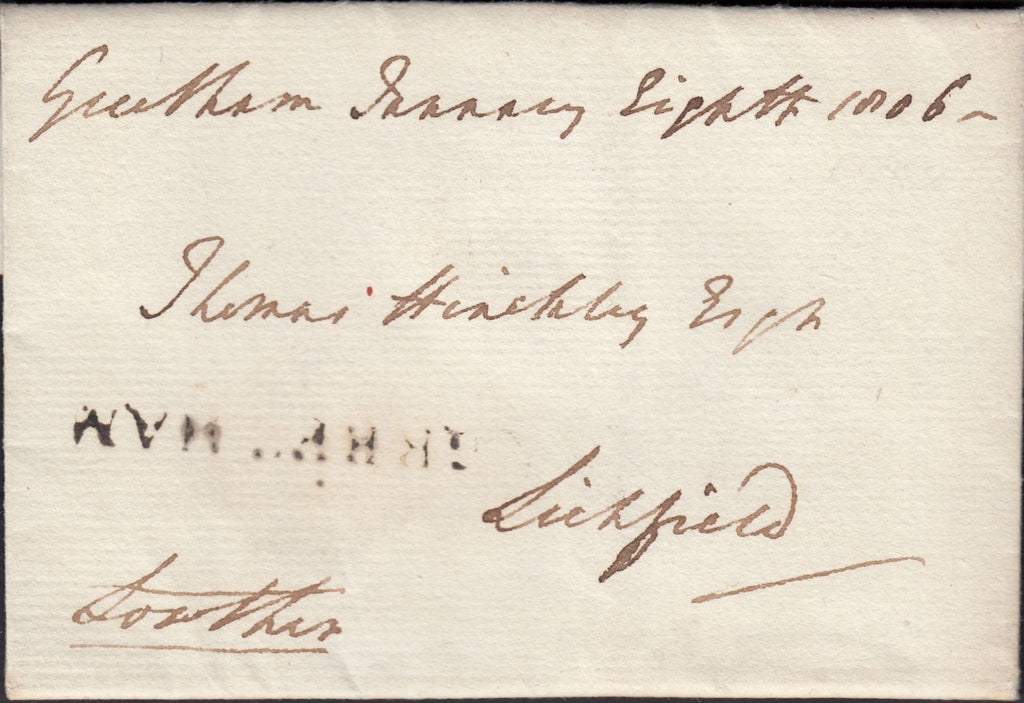 Greetham January Eighth 1806
Thomas Hinckley Esqr
Lichfield
Lowther